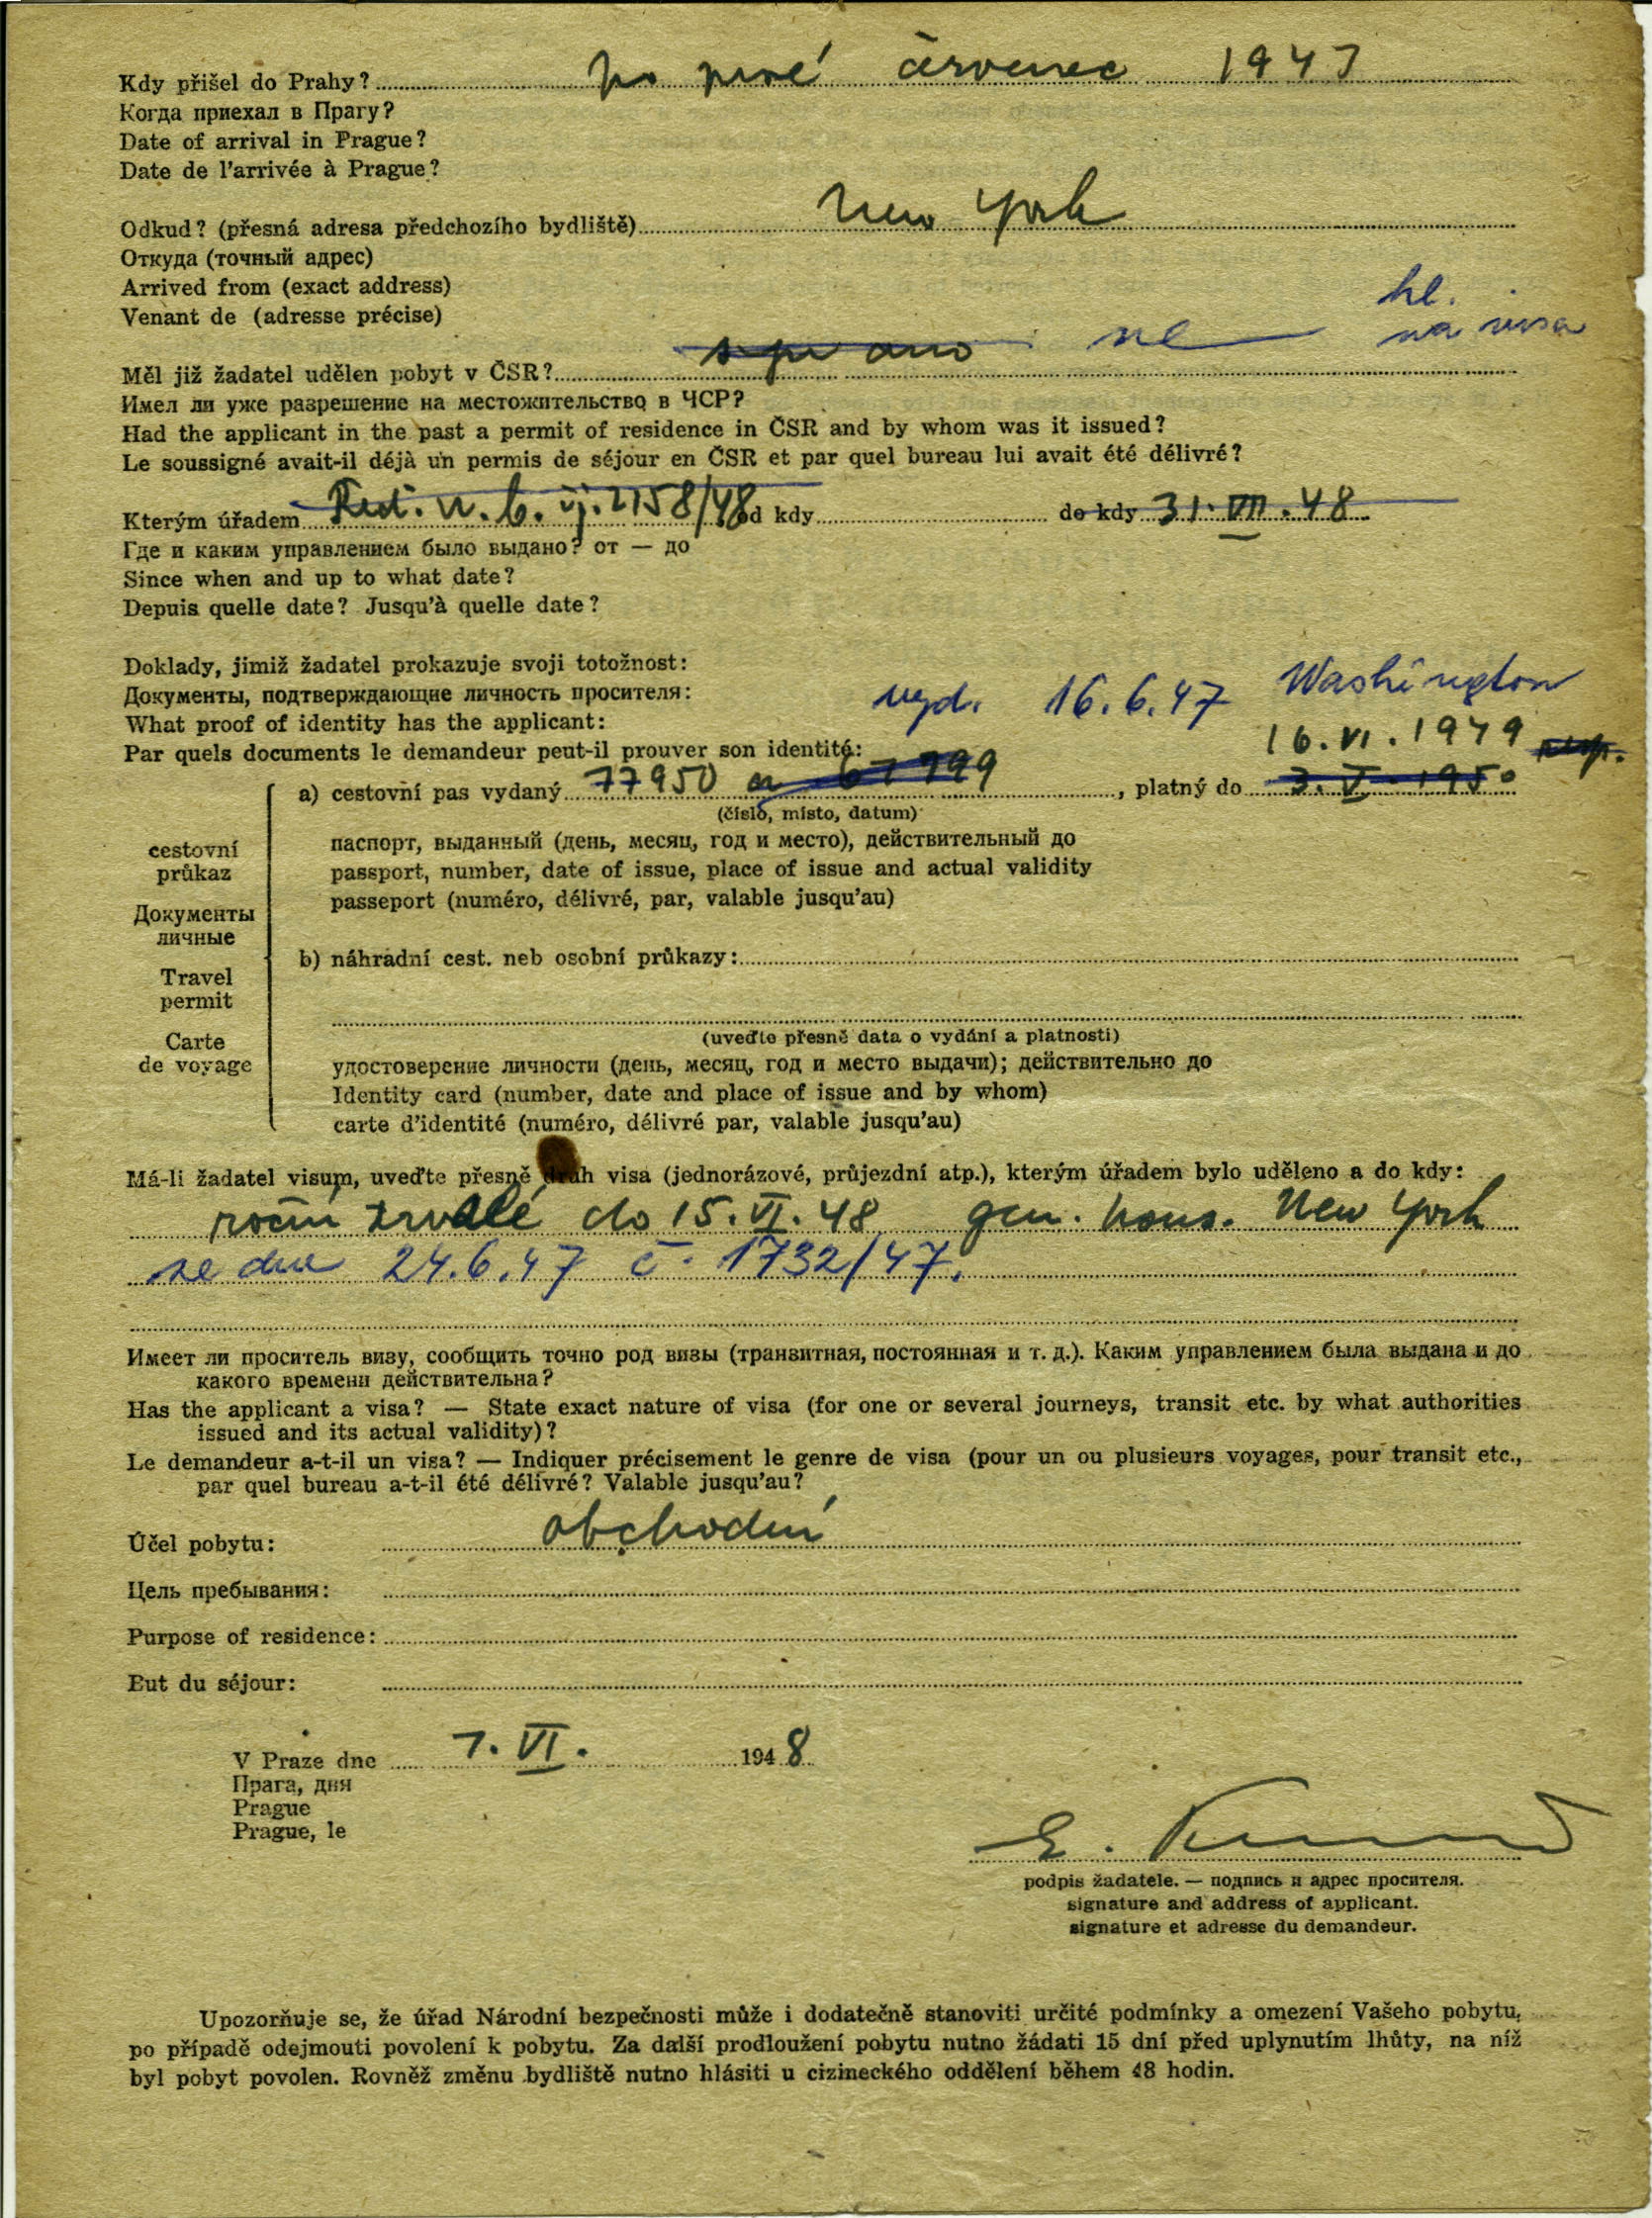 Kdy přišel do Prahy? po prvé červenec 1947
Когда приехал в Прагу?
Date of arrival in Prague?
Date de l'arrivée à Prague?
Odkud? (přesná adresa předchozího bydliště) New York
Откуда (точный адрес)
Arrived from (exact address)
Venant de (adresse précise)
hl.
na visa
Měl již žadatel udělen pobyt v ČSR? ano ne
Имел ли уже разрешение на местожительство в ЧСР?
Had the applicant in the past a permit of residence in ČSR and by whom was it issued?
Le soussigné avait-il déjà un permis de séjour en ČSR et par quel bureau lui avait été délivré?
Kterým úřadem Řed. n. b. 2158/48 od kdy do kdy 31. VII. 48
Где и каким управлением было выдано? от — до
Since when and up to what date?
Depuis quelle date? Jusqu'à quelle date?
Doklady, jimiž žadatel prokazuje svoji totožnost:
Документы, подтверждающие личность просителя:
What proof of identity has the applicant: vyd. 16.6.47 Washington
Par quels documents le demandeur peut-il prouver son identité: 16. VI. 1949
a) cestovní pas vydaný 77950 a 67999, platný do 3. V. 1950
(číslo, místo, datum)
паспорт, выданный (день, месяц, год и место), действительный до
passport, number, date of issue, place of issue and actual validity
passeport (numéro, délivré, par, valable jusqu'au)
cestovní
průkaz
Документы
личные
Travel
permit
Carte
de voyage
b) náhradní cest. neb osobní průkazy:
(uveďte přesně data o vydání a platnosti)
удостоверение личности (день, месяц, год и место выдачи); действительно до
Identity card (number, date and place of issue and by whom)
carte d'identité (numéro, délivré par, valable jusqu'au)
Má-li žadatel visum, uveďte přesně druh visa (jednorázové, průjezdní atp.), kterým úřadem bylo uděleno a do kdy:
roční trvalé do 15. VI. 48 gen. kons. New York
ze dne 24.6.47 č. 1732/47.
Имеет ли проситель визу, сообщить точно род визы (транзитная, постоянная и т. д.). Каким управлением была выдана и до
какого времени действительна?
Has the applicant a visa? — State exact nature of visa (for one or several journeys, transit etc. by what authorities
issued and its actual validity)?
Le demandeur a-t-il un visa? — Indiquer précisement le genre de visa (pour un ou plusieurs voyages, pour transit etc.,
par quel bureau a-t-il été délivré? Valable jusqu'au?
Účel pobytu: obchodní
Цель пребывания:
Purpose of residence:
But du séjour:
V Praze dne 7. VI. 1948
Прага, дня
Prague
Prague, le
E.
podpis žadatele. — подпись и адрес просителя.
signature and address of applicant.
signature et adresse du demandeur.
Upozorňuje se, že úřad Národní bezpečnosti může i dodatečně stanoviti určité podmínky a omezení Vašeho pobytu,
po případě odejmouti povolení k pobytu. Za další prodloužení pobytu nutno žádati 15 dní před uplynutím lhůty, na níž
byl pobyt povolen. Rovněž změnu bydliště nutno hlásiti u cizineckého oddělení během 48 hodin.